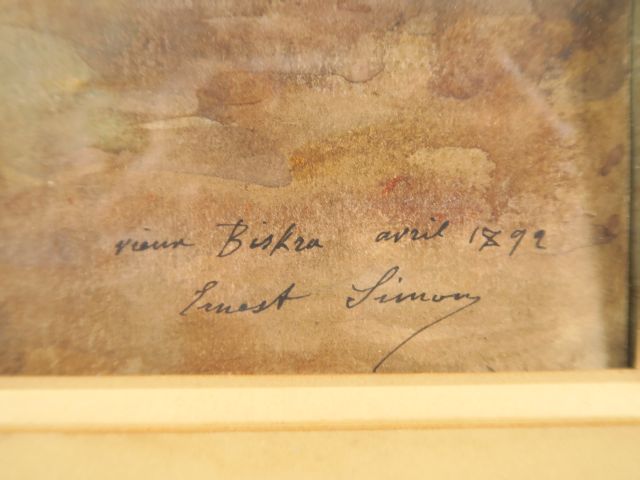 vieux Biskra avril 1892
Ernest Simon